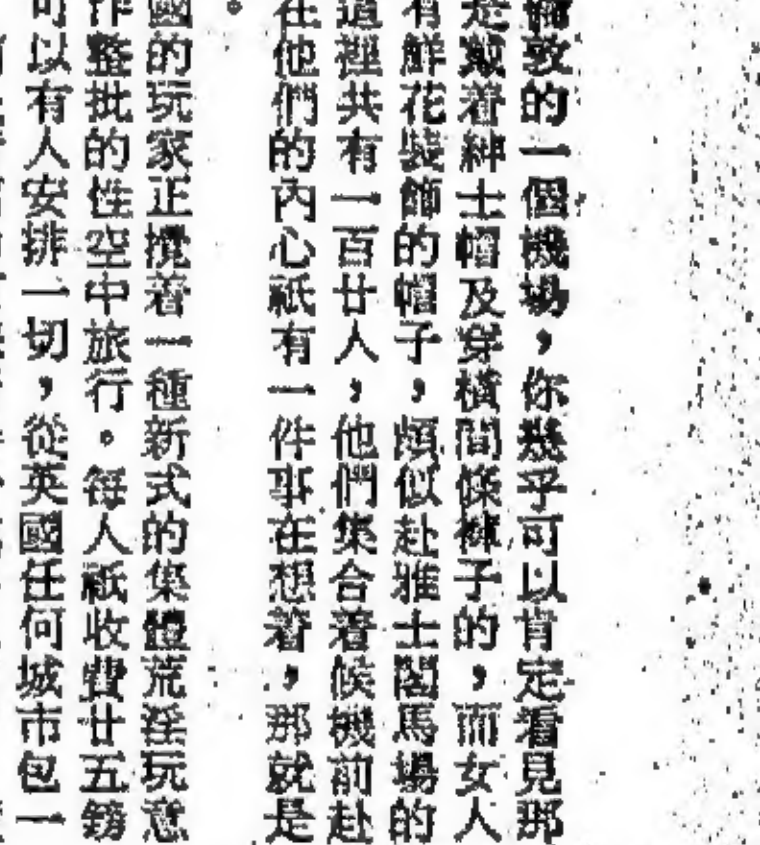 倫敦的一個機場，你幾乎可以肯定看見那
是戴着紳士帽及穿橫間條褲子的，而女人
有鮮花裝飾的帽子，頗似赴雅士閣馬場的
這裡共有一百廿人，他們集合着候機前赴
在他們的內心祇有一件事在想着，那就是
。
國的玩家正攪着一種新式的集體荒淫玩意
作整批的性空中旅行。每人祇收費廿五鎊
可以有人安排一切，從英國任何城市包一